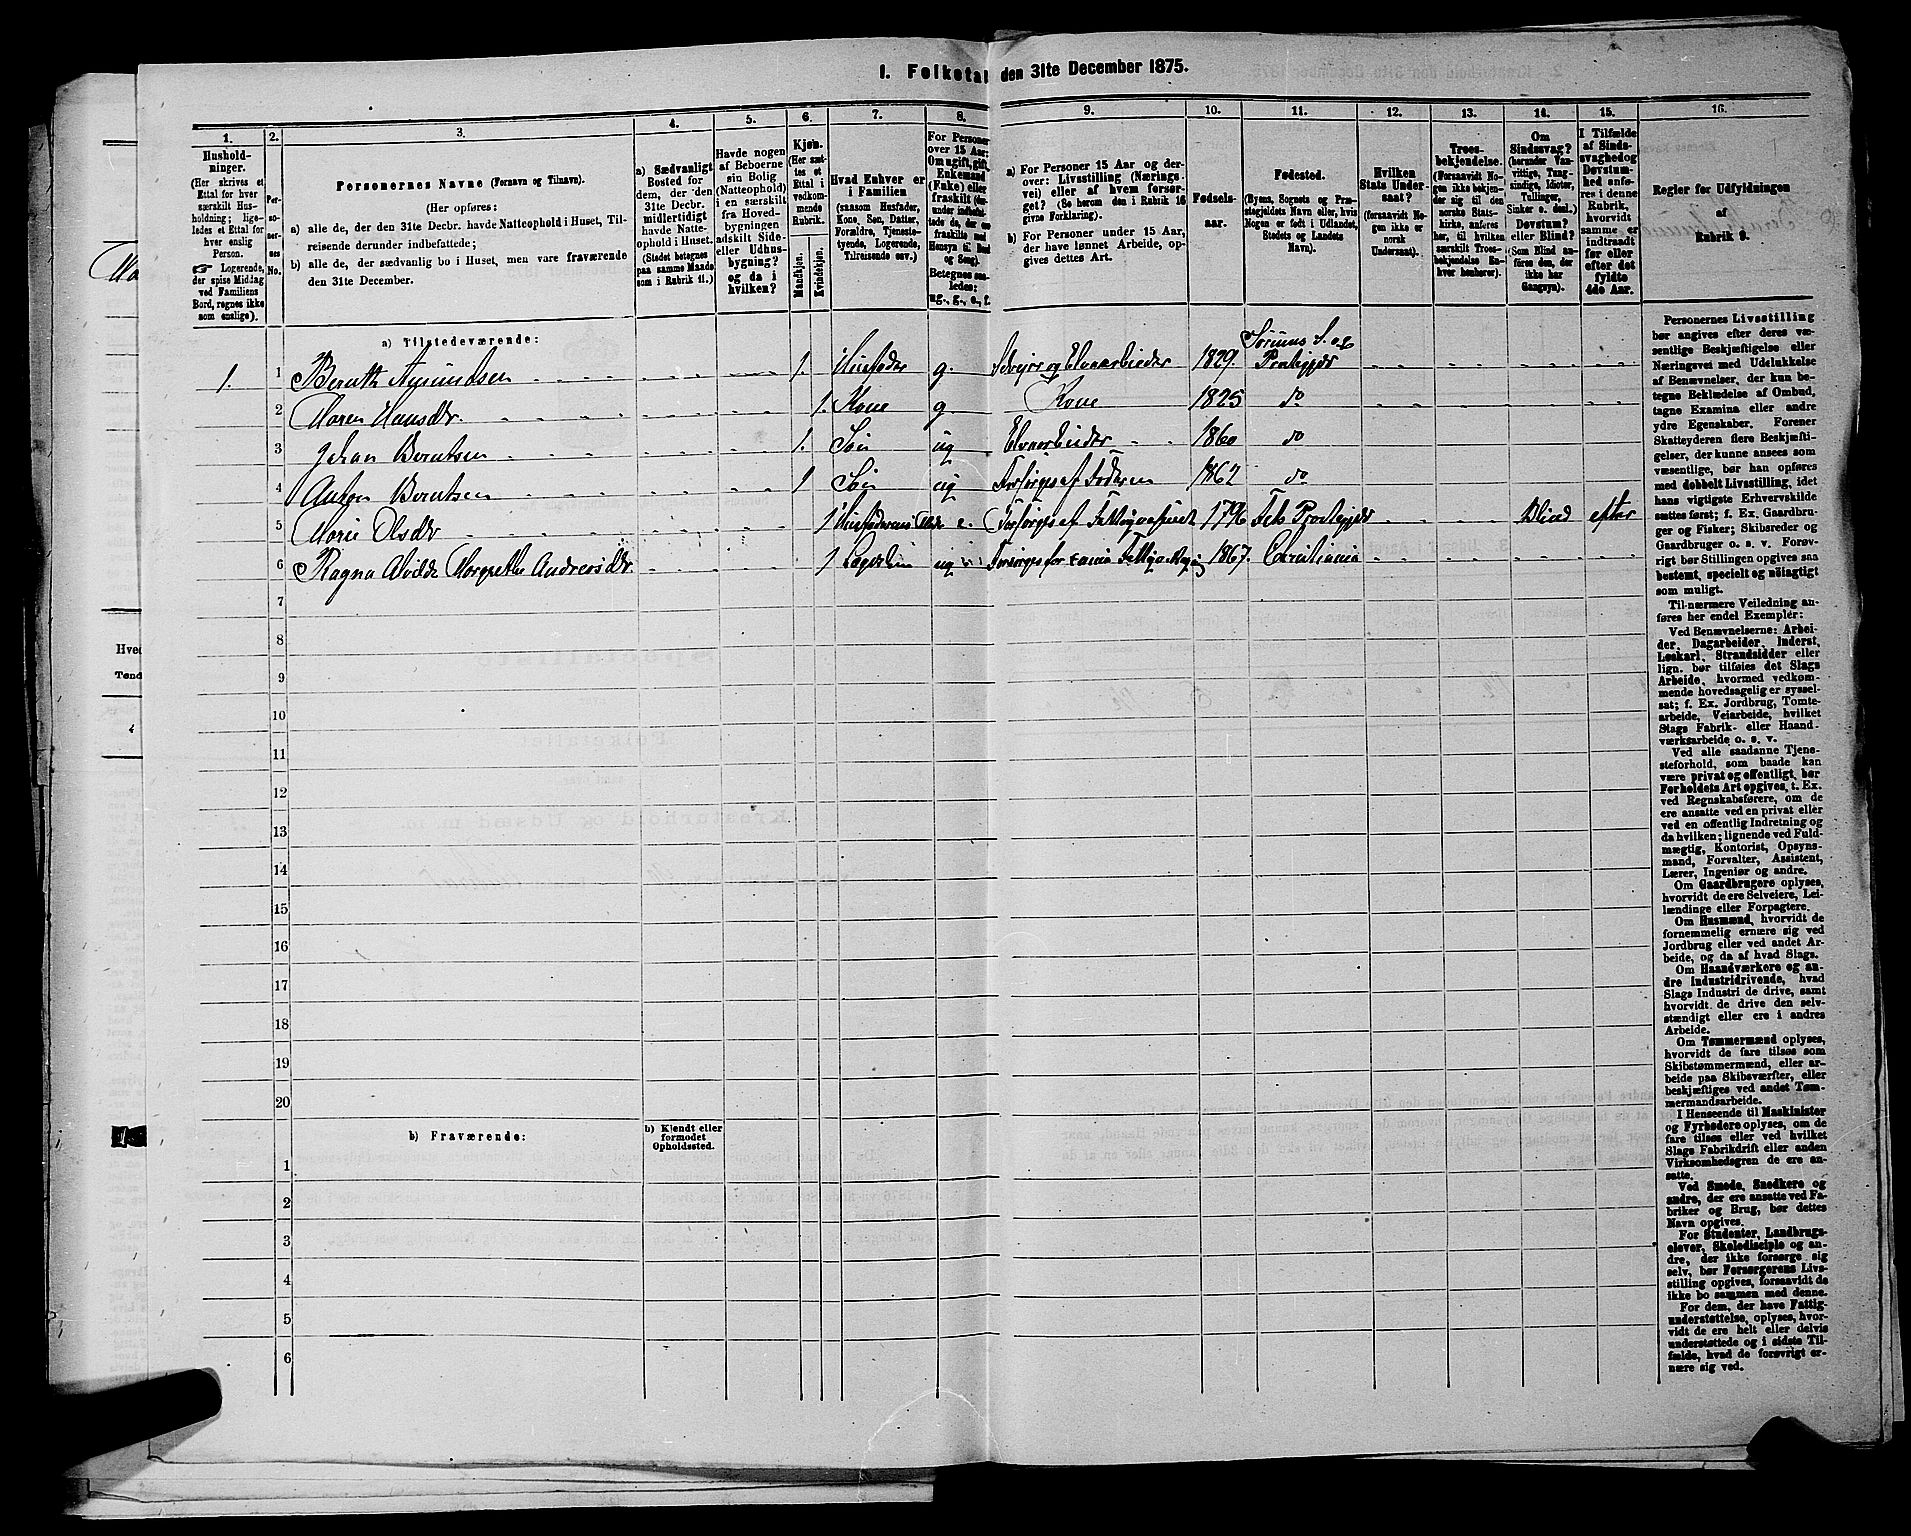 1. Folketal den 31te December 1875.
1.
2.
3.
4.
5.
6.
7.
8.
9.
10.
11.
12.
13.
14.
15.
16.
Hushold-
ninger.
(Her skrives et
Ettal for hver
særskilt Hus-
holdning; lige-
ledes et Ettal for
hver enslig
Person.
☞ Logerende,
der spise Middag
ved Familiens
Bord, regnes ikke
som enslige).
Per-
so-
ner-
nes
No.
Personernes Navne (Fornavn og Tilnavn).
(Her opføres:
a) alle de, der den 31te Decbr. havde Natteophold i Huset, Til-
reisende derunder indbefattede;
b) alle de, der sædvanlig bo i Huset, men vare fraværende
den 31te December.
a) Sædvanligt
Bosted for
dem, der den
31te Decbr.
midlertidigt
havde Natte-
ophold i Huset.
(Stedet betegnes
paa samme Maade
som i Rubrik 11.)
Havde nogen
af Beboerne
sin Bolig
(Natteophold)
i en særskilt
fra Hoved-
bygningen
adskilt Side-
eller Udhus-
bygning?
og da i
hvilken?
Kjøn.
(Her sæt-
tes et
Ettal i
vedkom-
mende
Rubrik.
Mandkjøn.
Kvindekjøn.
Hvad Enhver er
i Familien
(saasom Husfader,
Kone, Søn, Datter,
Forældre, Tjeneste-
tyende, Logerende,
Tilreisende osv.)
For Personer
over 15 Aar:
Om ugift, gift,
Enkemand
(Enke) eller
fraskilt
Betegnes saa-
ledes:
ug., g., e., f.
a) For Personer 15 Aar og der-
over: Livsstilling (Nærings-
vei) eller af hvem forsør-
get? (Se herom den i Rubrik 16
givne Forklaring).
b) For Personer under 15 Aar,
der have lønnet Arbeide, op-
gives dettes Art.
Fødsels-
aar.
Fødested.
(Byens, Sognets og Præ-
stegjeldets Navn eller, hvis
Nogen er født i Udlandet,
Stedets og Landets
Navn).
Hvilken
Stats Under-
saat?
(forsaavidt No-
gen ikke er
norsk
Undersaat).
Troes-
bekjendelse.
(Forsaavidt No-
gen ikke bekjen-
der sig til den
norske Stats-
kirke, anføres
her, til hvilken
særskilt Troes-
bekjendelse En-
hver henhører).
Om
Sindssvag?
(herunder Van-
vittige, Tung-
sindige, Idioter,
Tullinger,
Sinker o. desl.)
Døvstum?
eller Blind?
(Som Blind an-
føres den, der
ikke har
Gangsyn).
I Tilfælde
af Sinds-
svaghed og
Døvstum-
hed anfø-
res i denne
Rubrik,
hvorvidt
samme er
indtraadt
før eller
efter det
fyldte
4de Aar.
Regler for Udfyldningen
af
Rubrik 9.
a) Tilstedeværende:
1. 1 Berath Asmundsen 1. Husfader g. Selveier og Elvearbeider 1829. Sørums S. og Prstgjeld
2 Maren Hansdtr 1. Kone g. Kone 1825 do
3 Johan Berntsen 1. Søn ug Elvearbeider 1860 do
4 Anton Berntsen 1 Søn ug Forsørges af Faderen 1862 do
5 Marie Olsdtr 1 e. Forsørges af 1796 Fets Prstegjeld Blind efter
6 Ragna Margrethe Andersdtr. 1 ug 1867. Christiania
7
8
9
10
11
12
13
14
15
16
17
18
19
20
b) Fraværende:
b) Kjendt eller
formodet
Opholdssted.
1
2
3
4
5
6
Personernes Livsstilling
bør angives efter deres væ-
sentlige Beskjæftigelse eller
Næringsvei med Udelukkelse
af Benævnelser, der kun be-
tegne Beklædelse af Ombud,
tagne Examina eller andre
ydre Egenskaber. Forener
Skatteyderen flere Beskjæfti-
gelser, der kunne ansees som
væsentlige, bør han opføres
med dobbelt Livsstilling, idet
hans vigtigste Erhvervskilde
sættes først; f. Ex. Gaardbru-
ger og Fisker; Skibsreder og
Gaardbruger o. s. v. Forøv-
rigt bør Stillingen opgives saa
bestemt, specielt og nøiagtigt
som muligt.
Til nærmere Veiledning an-
føres her endel Exempler:
Ved Benævnelserne: Arbei-
der, Dagarbeider, Inderst,
Løskarl, Strandsidder eller
lign. bør tilføies det Slags
Arbeide, hvormed vedkom-
mende hovedsagelig er syssel-
sat; f. Ex. Jordbrug, Tomte-
arbeide, Veiarbeide, hvilket
Slags Fabrik- eller Haand-
værksarbeide o. s. v.
Ved alle saadanne Tjene-
steforhold, som baade kan
være privat og offentligt, bør
Forholdets Art opgives, t. Ex.
ved Regnskabsførere, om de
ere ansatte ved en privat eller
ved en offentlig Indretning og
da hvilken; lignende ved Fuld-
mægtig, Kontorist, Opsyns-
mand, Forvalter, Assistent,
Lærer, Ingeniør og andre.
Om Gaardbrugere oplyses,
hvorvidt de ere Selveiere, Lei-
lændinge eller Forpagtere.
Om Husmænd, hvorvidt de
fornemmelig ernære sig ved
Jordbrug eller ved andet Ar-
beide, og da af hvad Slags.
Om Haandværkere og an-
dre Industridrivende, hvad
Slags Industri de drive, samt
hvorvidt de drive den selv-
stændigt eller ere i andres
Arbeide.
Om Tømmermænd oplyses,
hvorvidt de fare tilsøs som
Skibstømmermænd, eller ar-
beide paa Skibsværfter, eller
beskjæftiges ved andet Tøm-
mermandsarbeide.
I Henseende til Maskinister
og Fyrbødere oplyses, om de
fare tilsøs eller ved hvilket
Slags Fabrikdrift eller anden
Virksomhedsgren de ere an-
satte.
Ved Smede, Snedkere og
andre, der ere ansatte ved Fa-
briker og Brug, bør dettes
Navn opgives.
For Studenter, Landbrugs-
elever, Skoledisciple og an-
dre, der ikke forsørge sig
selv, bør Forsørgerens Livs-
stilling opgives, forsaavidt de
ikke bo sammen med denne.
For dem, der have Fattig-
understøttelse, oplyses, hvor-
vidt de ere helt eller delvis
understøttede og i sidste Til-
fælde, hvad de forøvrigt er-
nære sig ved.